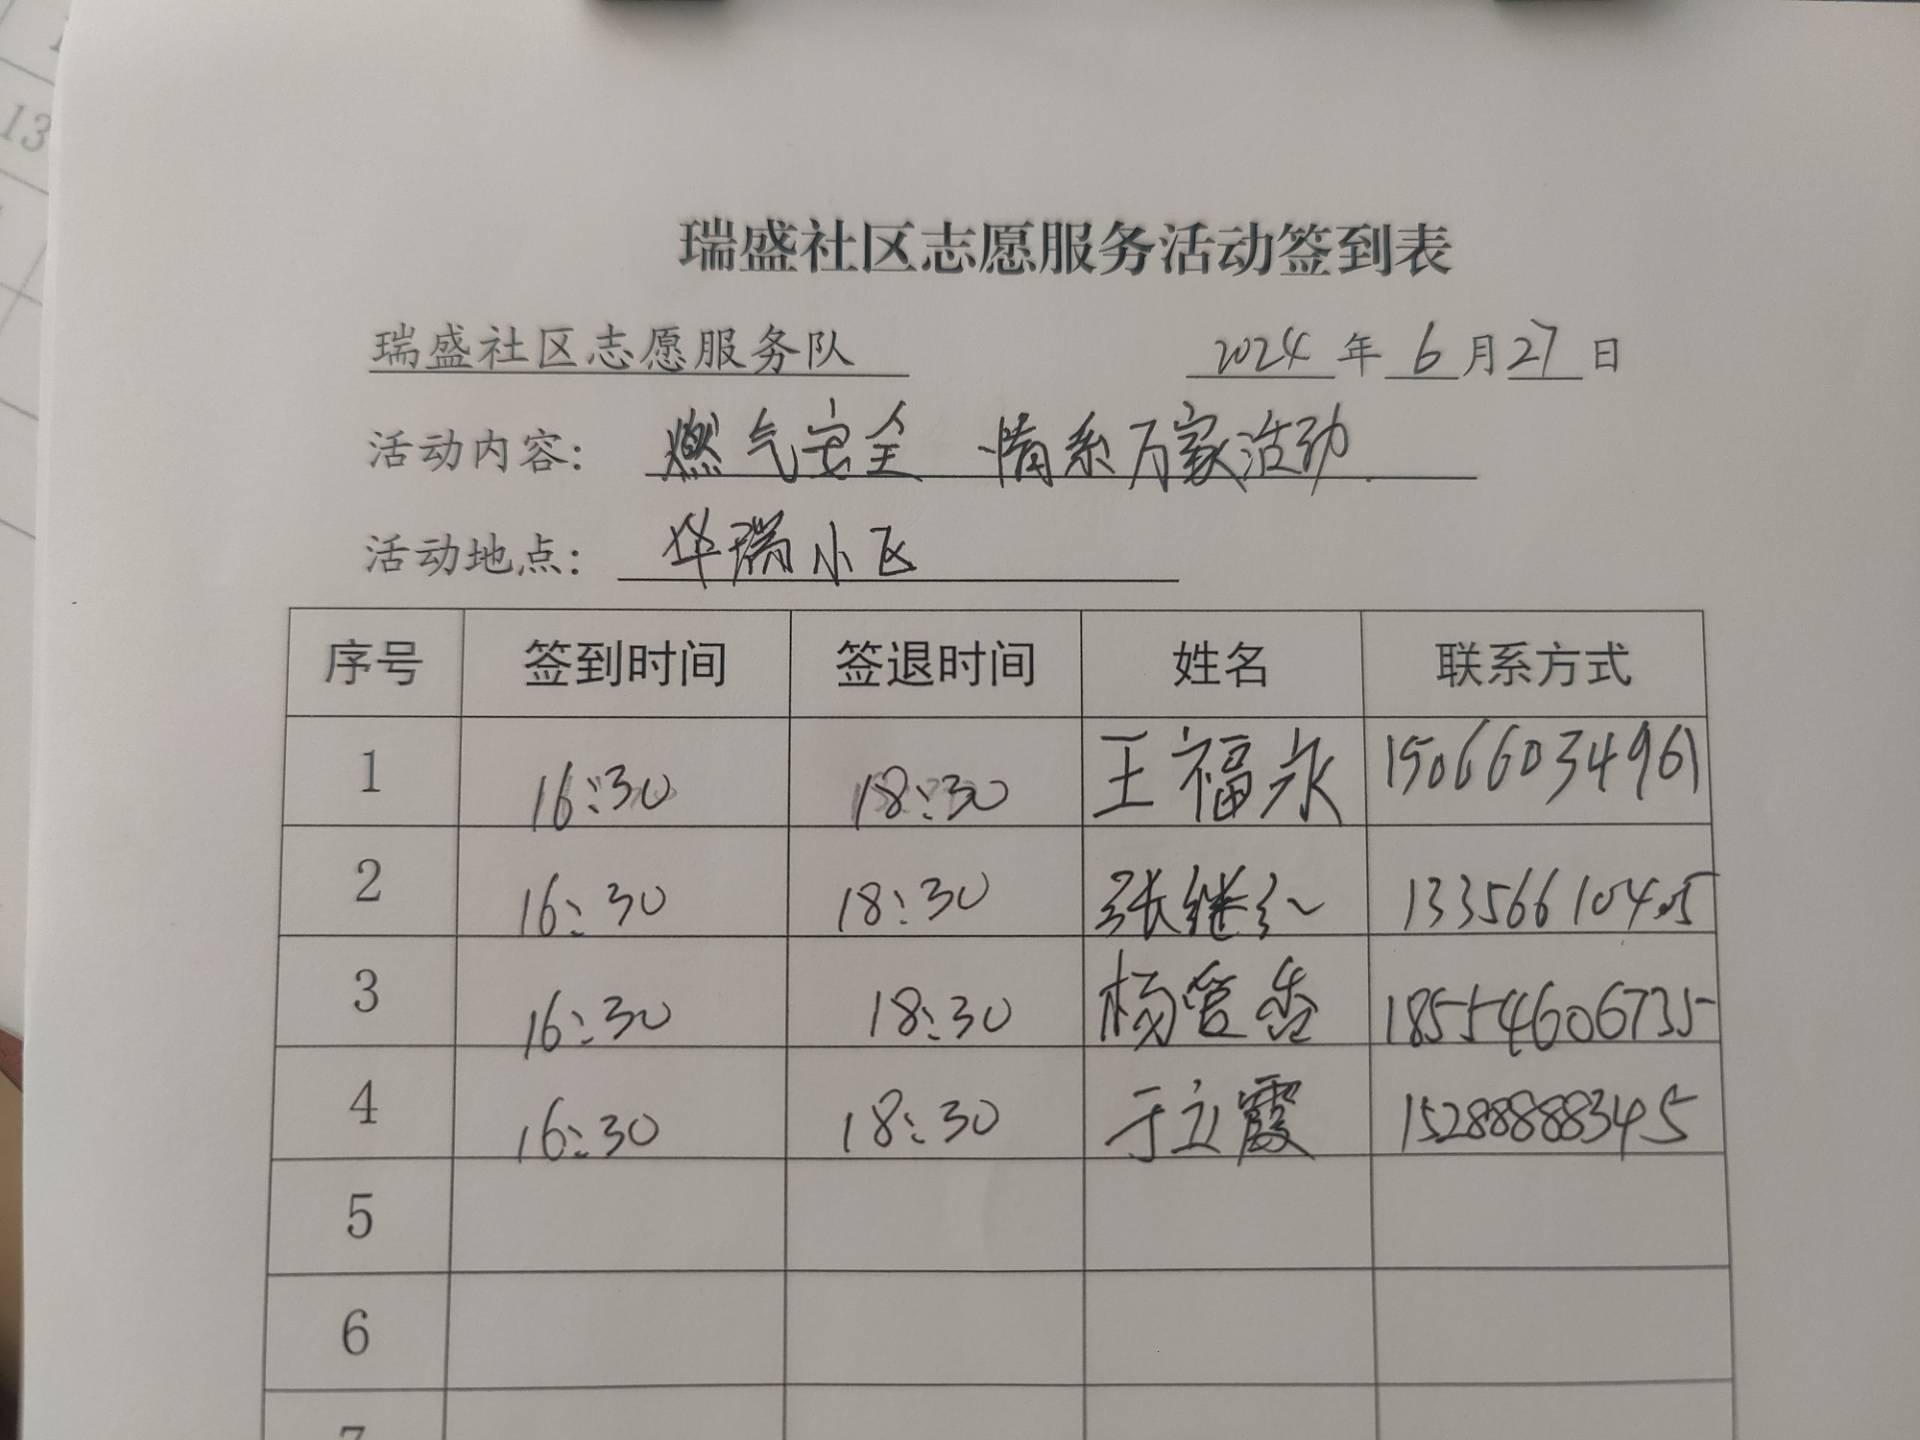 13
瑞盛社区志愿服务活动签到表
瑞盛社区志愿服务队 2024年6月27日
活动内容: 燃气安全 情系万家活动.
活动地点: 华瑞小区
序号 签到时间 签退时间 姓名 联系方式
1 16:30 18:30 王福永 15066034961
2 16:30 18:30 张继 
3 16:30 18:30 杨管香 18554606735
4 16:30 18:30 于立霞 15288888345
5
6
7